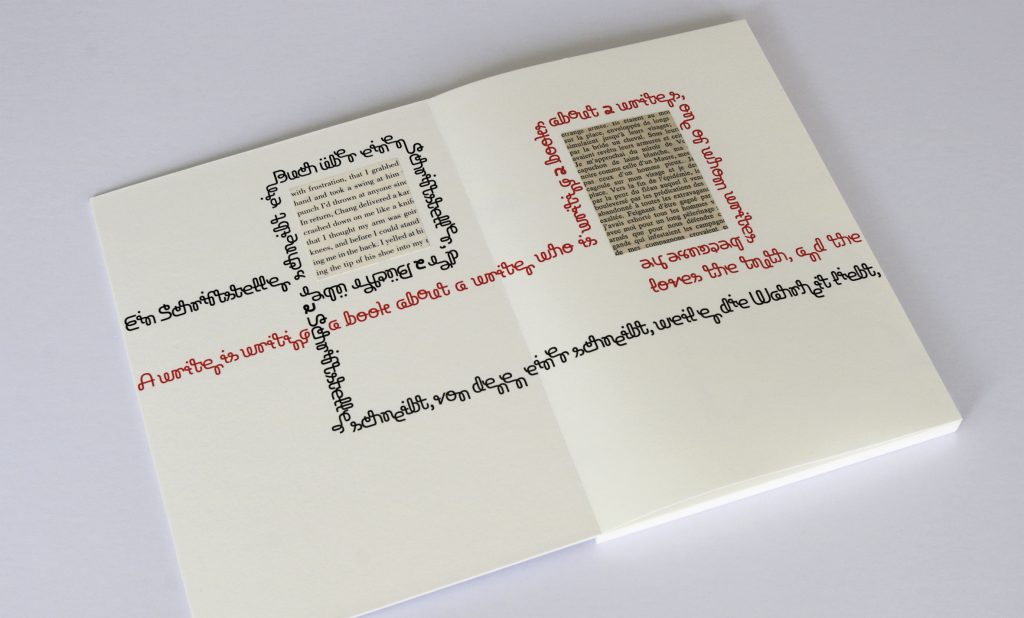 Ein Schriftsteller schreibt ein Buch über einen Schriftsteller, der 2 Bücher über 2 Schriftsteller schreibt, von denen einer schreibt, weil er die Wahrheit liebt,
with frustration, that I grabbed
hand and took a swing at him
punch I'd thrown at anyone sinc
In return, Chang delivered a kar
crashed down on me like a kni
that I thought my arm was goir
knees, and before I could stand
ing me in the back. I yelled at hi
ing the tip of his shoe into my
A writer is writing a book about a writer who is writing 2 books about 2 writers, one of whom writes because he
loves the truth, and the
étrange armée. Ils étaient au moi
sur la place, enveloppés de longs
simulaient jusqu'à leurs visages;
par la bride un cheval. Sous leur
avaient revêtu leurs armures et cei
Je m'approchai du miroir de V
capuchon de laine blanche,
noire comme celle d'un Maure, me
pas ceux d'un homme pieux.
cagoule sur mon visage et je de
place. Vers la fin de l'épidémie, il
sur la peur du fléau auquel il ven
bouleversé par les prédications des
abandonné à toutes les extravagan
malades. Feignant d'être gagné p
j'avais exhorté tous les hommes v
avec moi pour un long pèlerinage
armés que pour nous défendre
gands qui infestaient les campagn
de mes compagnons croyaient